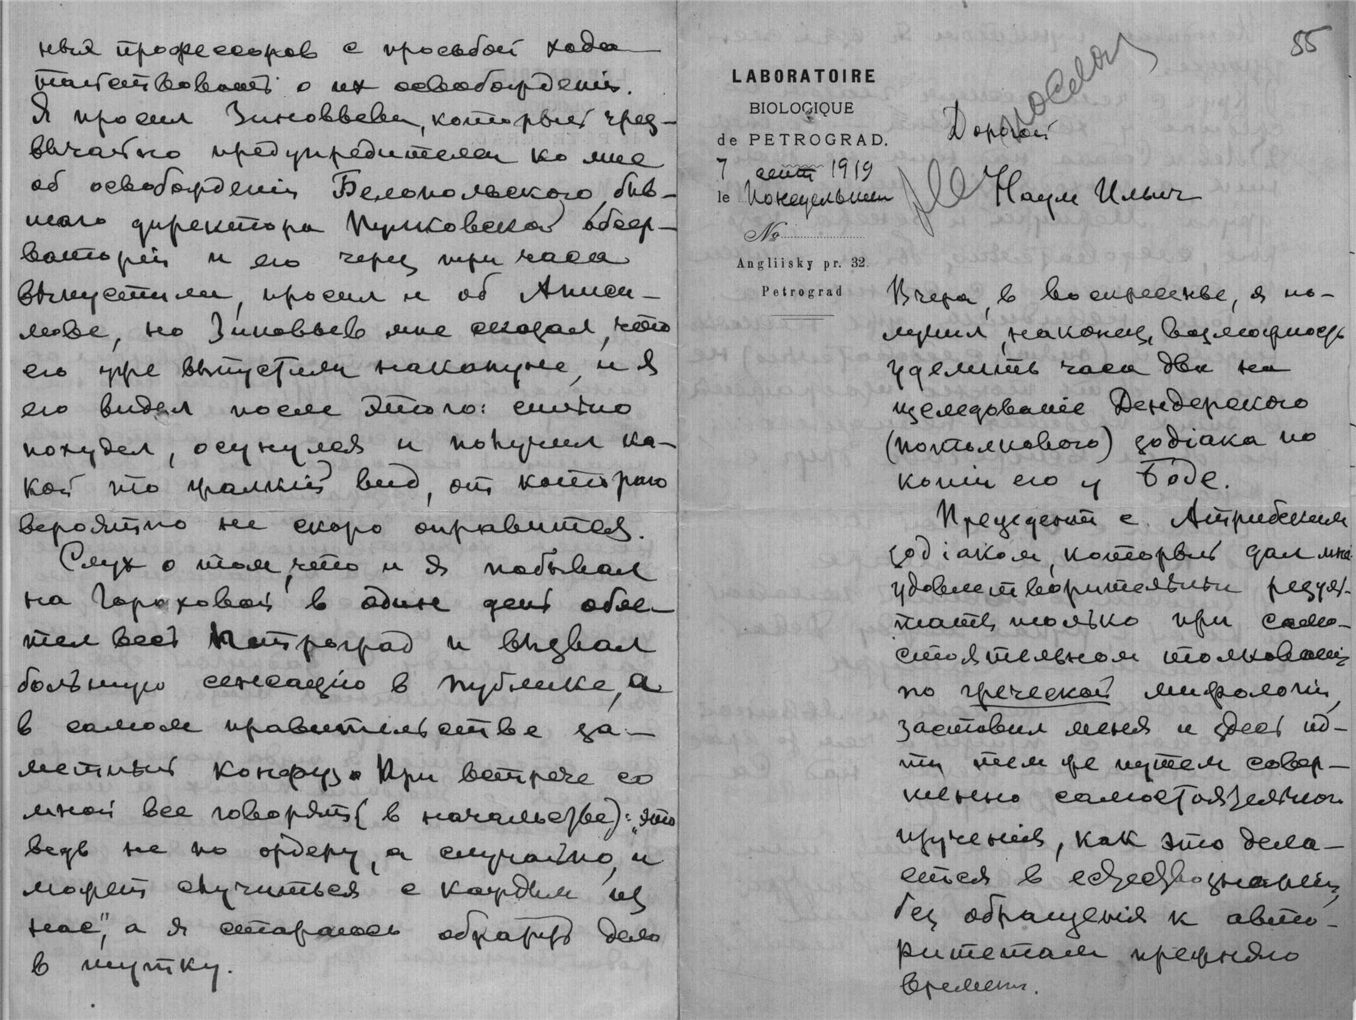 ныя профессоров с просьбой хода-
тайствовать о их освобожденіи.
Я просил Зиновьева, который чрез-
вычайно предупредителен ко мне
об освобожденіи Белопольского, быв-
шаго директора Пулковской обсер-
ваторіи и его чрез три часа
выпустили, просил и об Аниси-
мове, но Зиновьев мне сказал, что
его уже выпустили накануне, и я
его видел после этого: сильно
похудел, осунулся и получил ка-
кой то жалкій вид, от котораго
вероятно не скоро оправится.
Слух о том, что и я побывал
на Гороховой в один день обле-
тел весь Петроград и вызвал
большую сенсацію в публике, а
в самом правительстве за-
метный конфуз. При встрече со
мной все говорят (в начальстве): "это
ведь не по ордеру, а случайно, и
может случиться с каждым из
нас", а я стараюсь обратить дело
в шутку.
55
LABORATOIRE
BIOLOGIQUE
de PETROGRAD.
7 сент 1919
le Понедельник
№
Angliisky pr. 32.
Petrograd
Дорогой
Наум Ильич
Вчера, в воскресенье, я по-
лучил, наконец, возможность
уделить часа два на
изследованіе Дендерского
(потолкового) зодіака по
копіи его у Боде.
Прецедент с Атрибским
зодіаком, который дал мне
удовлетворительный резуль-
тат только при само-
стоятельном толкованіи
по греческой мифологіи,
заставил меня и здесь ид-
ти тем же путем совер-
шенно самостоятельного
изученія, как это дела-
ется в естествознаніи,
без обращенія к авто-
ритетам прежняго
времени.